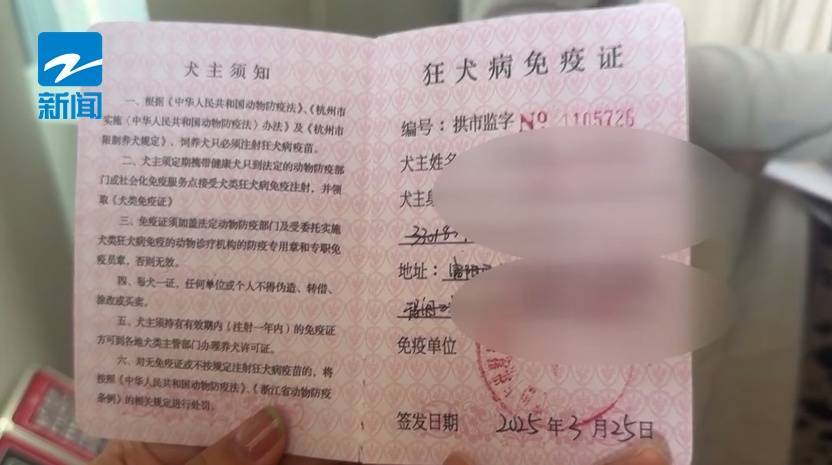 新闻
犬主须知
一、根据《中华人民共和国动物防疫法》、《杭州市
实施〈中华人民共和国动物防疫法〉办法》及《杭州市
限制养犬规定》，饲养犬只必须注射狂犬病疫苗。
二、犬主须定期携带健康犬只到法定的动物防疫部
门或社会化免疫服务点接受犬类狂犬病免疫注射，并领
取《犬类免疫证》
三、免疫证须加盖法定动物防疫部门及受委托实施
犬类狂犬病免疫的动物诊疗机构的防疫专用章和专职免
疫员章，否则无效。
四、每犬一证，任何单位或个人不得伪造、转借、
涂改或买卖。
五、犬主须持有有效期内（注射一年内）的免疫证
方可到各地犬类主管部门办理养犬许可证。
六、对无免疫证或不按规定注射狂犬病疫苗的，将
按照《中华人民共和国动物防疫法》、《浙江省动物防疫
条例》的相关规定进行处罚。
狂犬病免疫证
编号：拱市监字 № 1105726
犬主姓名
犬主
地址：富阳
免疫单位
签发日期 2025年3月25日